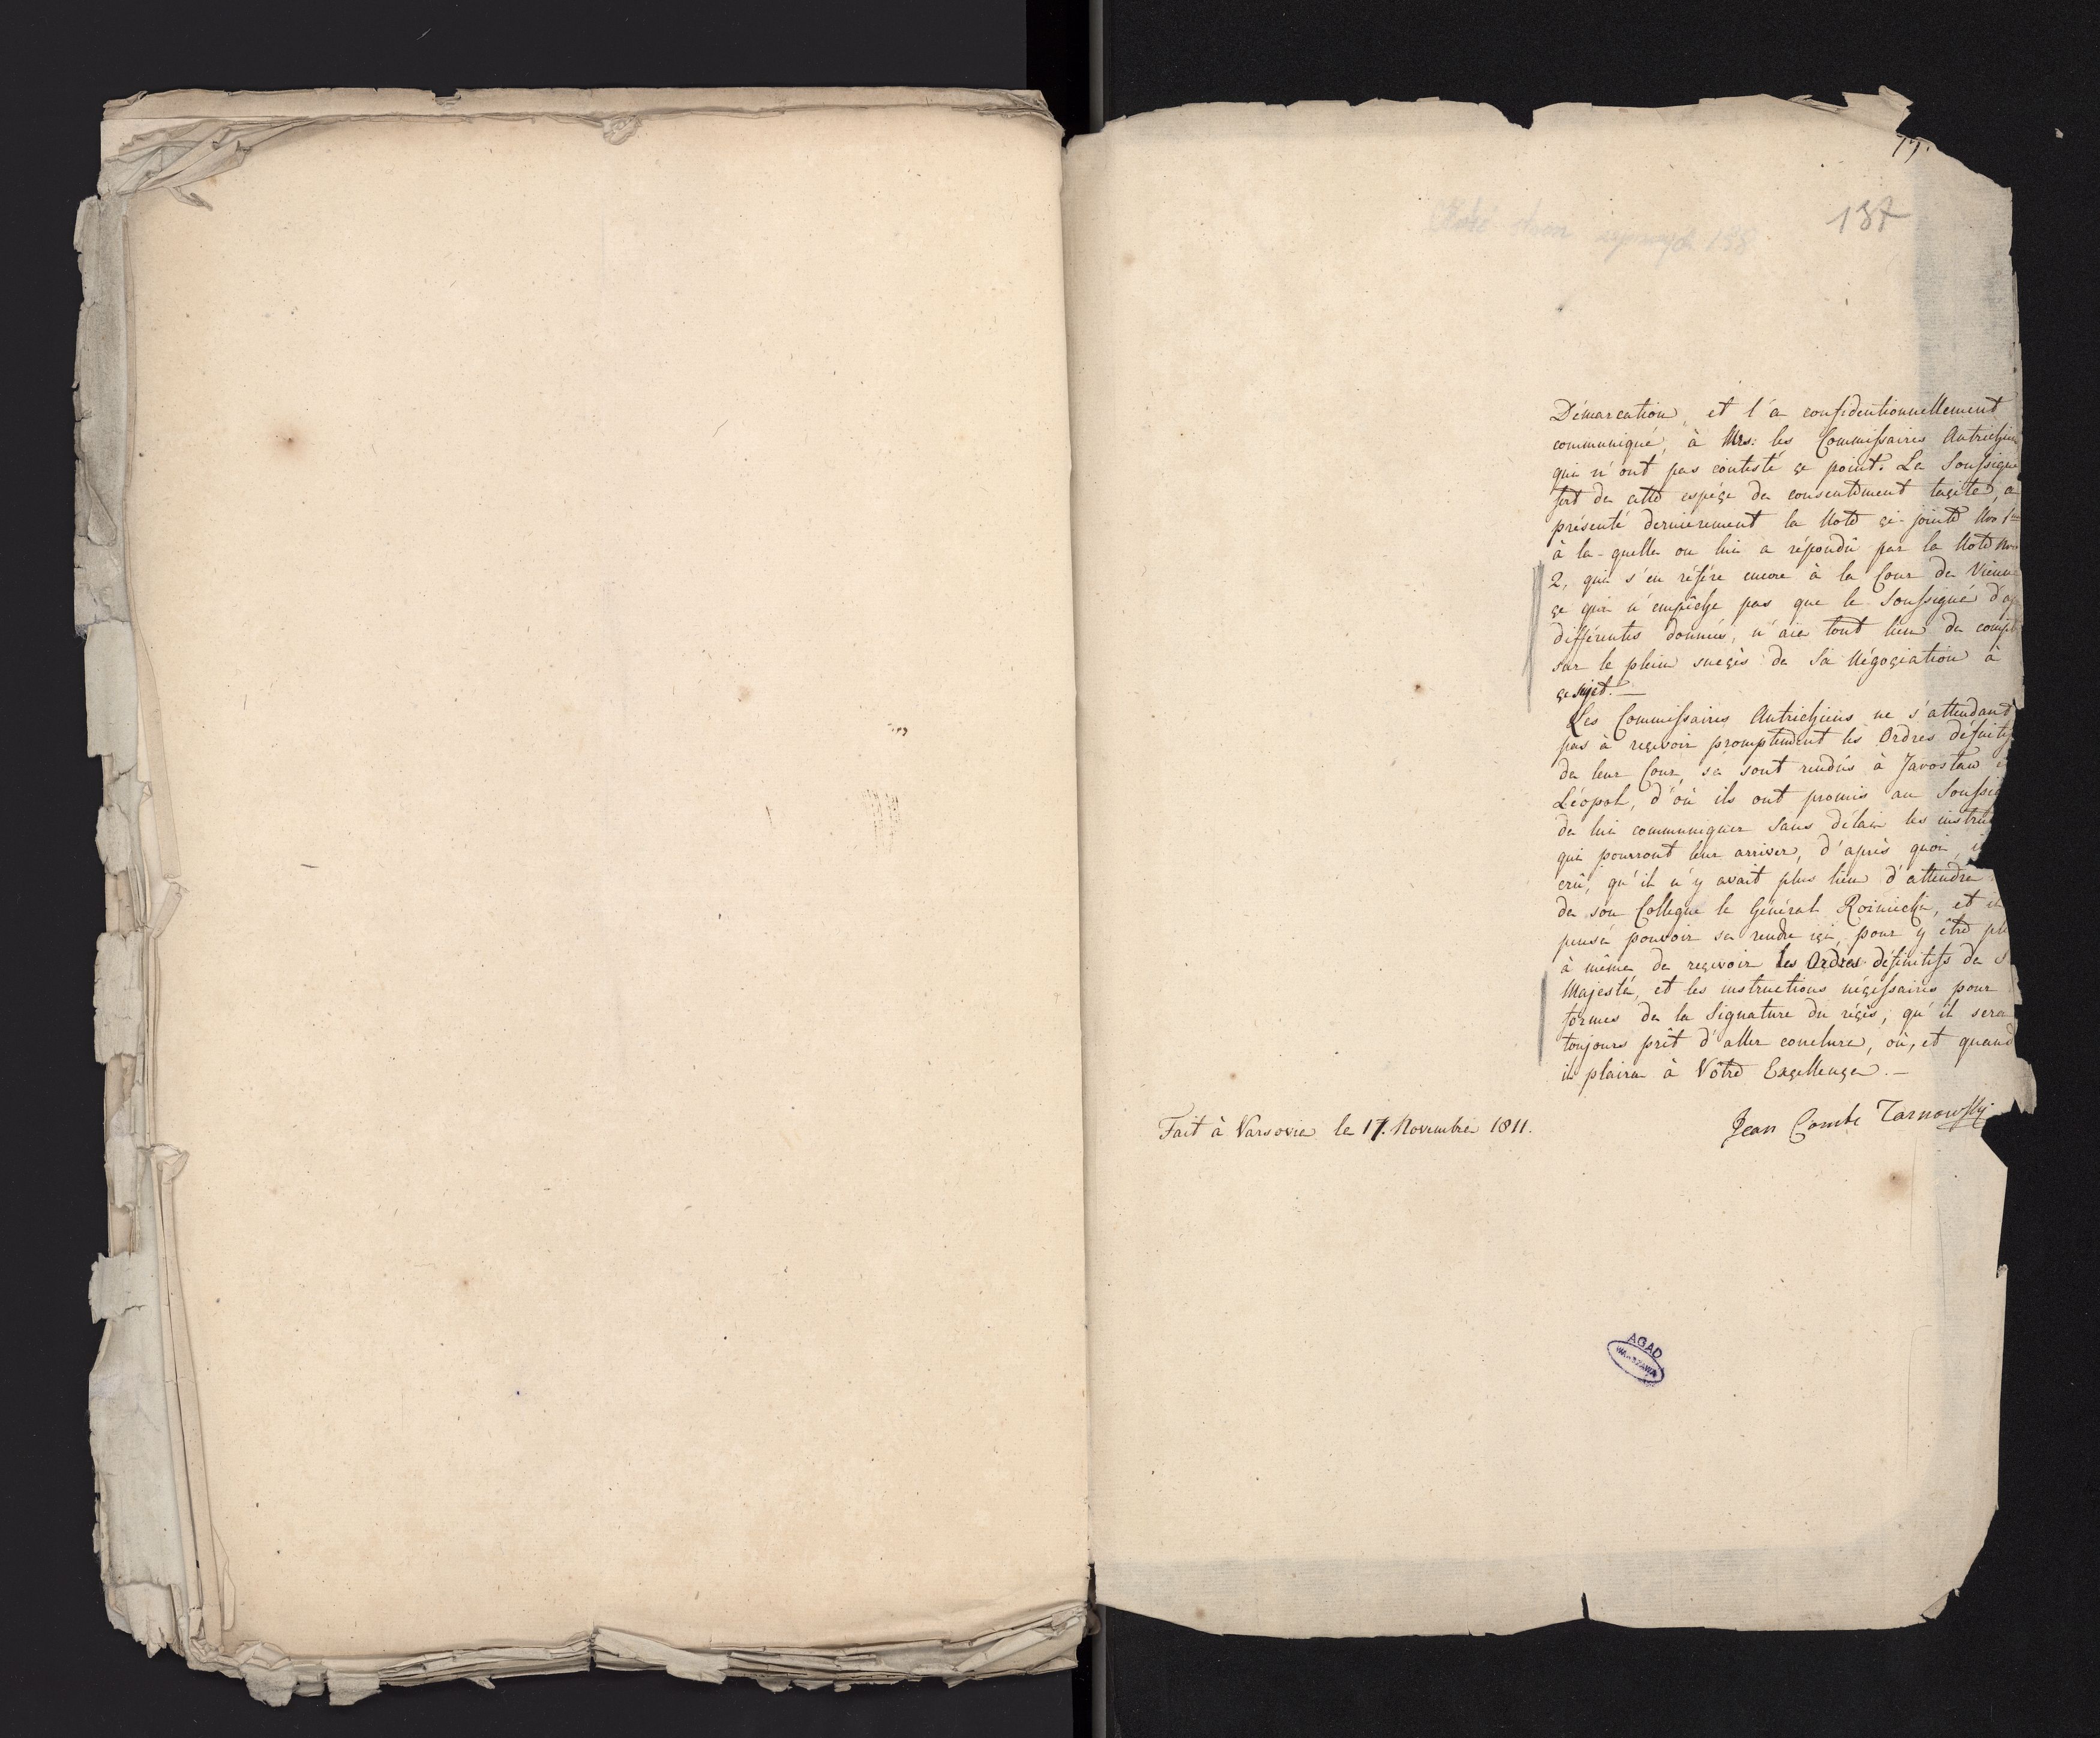 77.
137
Démarcation, et l'a confidentionnellement
communiqué, à Mrs: les Commissaires Autrichiens
qui n'ont pas contesté çe point. Le Soussigné
fort de cette espéçe de consentiment taçite, a
présenté derniérement la Note çi-jointe Nro 1
à la-quelle on lui a répondû par la Note Nro
2, qui s'en référe encore à la Cour de Vienne
çe qui n'empêche pas que le Soussigné d'ap
différentes données, n'aie tout lieu de compt
sur le plein suçcès de Sa Négoçiation à
çe sujet.—
Les Commissaires Autrichiens ne s'attendant
pas à reçevoir promptement les Ordres définitifs
de leur Cour, se sont rendûs à Jarosław e
Léopol, d'où ils ont promis au Soussig
de lui communiquer sans délai les instru
qui pourront leur arriver, d'après quoi, i
crû, qu'il n'y avait plus lieu d'attendre
de son Collegue le Général Roźniecki, et il
pensé pouvoir se rendre içi, pour y être pl
à même de reçevoir les Ordres définitifs de S
Majesté, et les instructions néçessaires pour
formes de la Signature du réçès, qu'il sera
toujours prêt d'aller conclure, où, et quand
il plaira à Vôtre Exçellençe.—
Fait à Varsovie le 17. Novembre 1811.
Jean Comte Tarnowski
AGAD
WARSZAWA